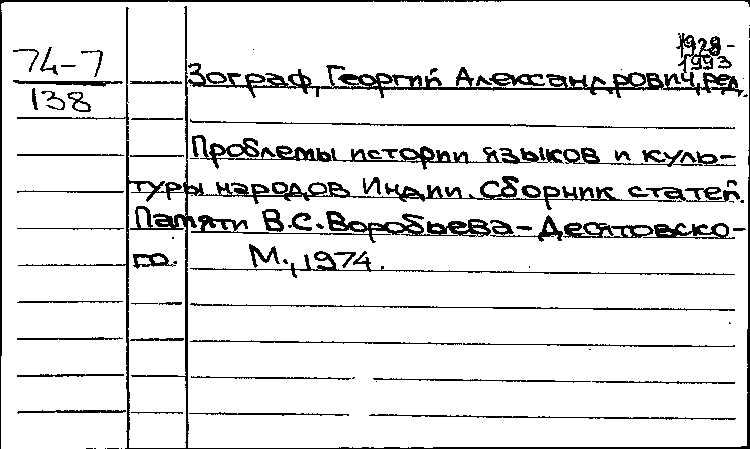 1928-
1993
74-7
138
Зограф, Георгий Александрович, ред.
Проблемы истории языков и куль-
туры народов Индии. Сборник статей.
Памяти В.С. Воробьева-Десятовско-
го. М., 1974.